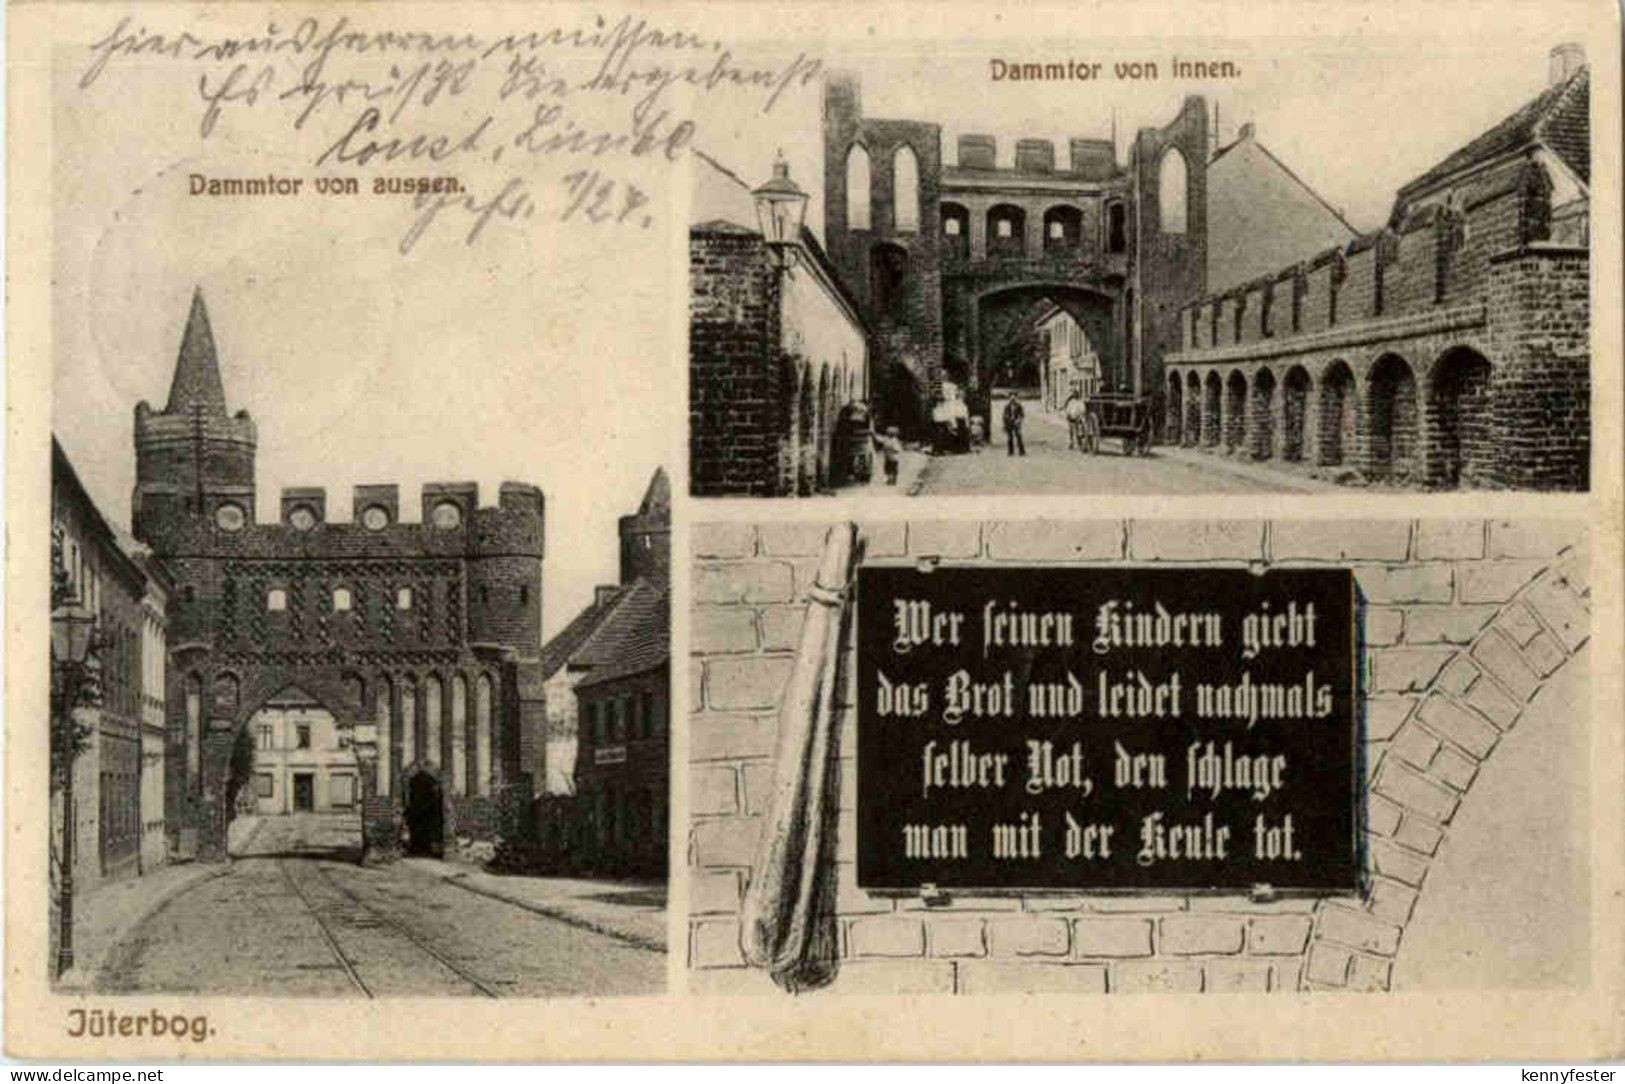 hier ausharren müssen.
Es grüßt Sie ergebenst
Const.
Gefr. 1/27.
Dammtor von aussen.
Dammtor von innen.
Wer seinen Kindern giebt
das Brot und leidet nachmals
selber Not, den schlage
man mit der Keule tot.
Jüterbog.
www.delcampe.net
kennyfester